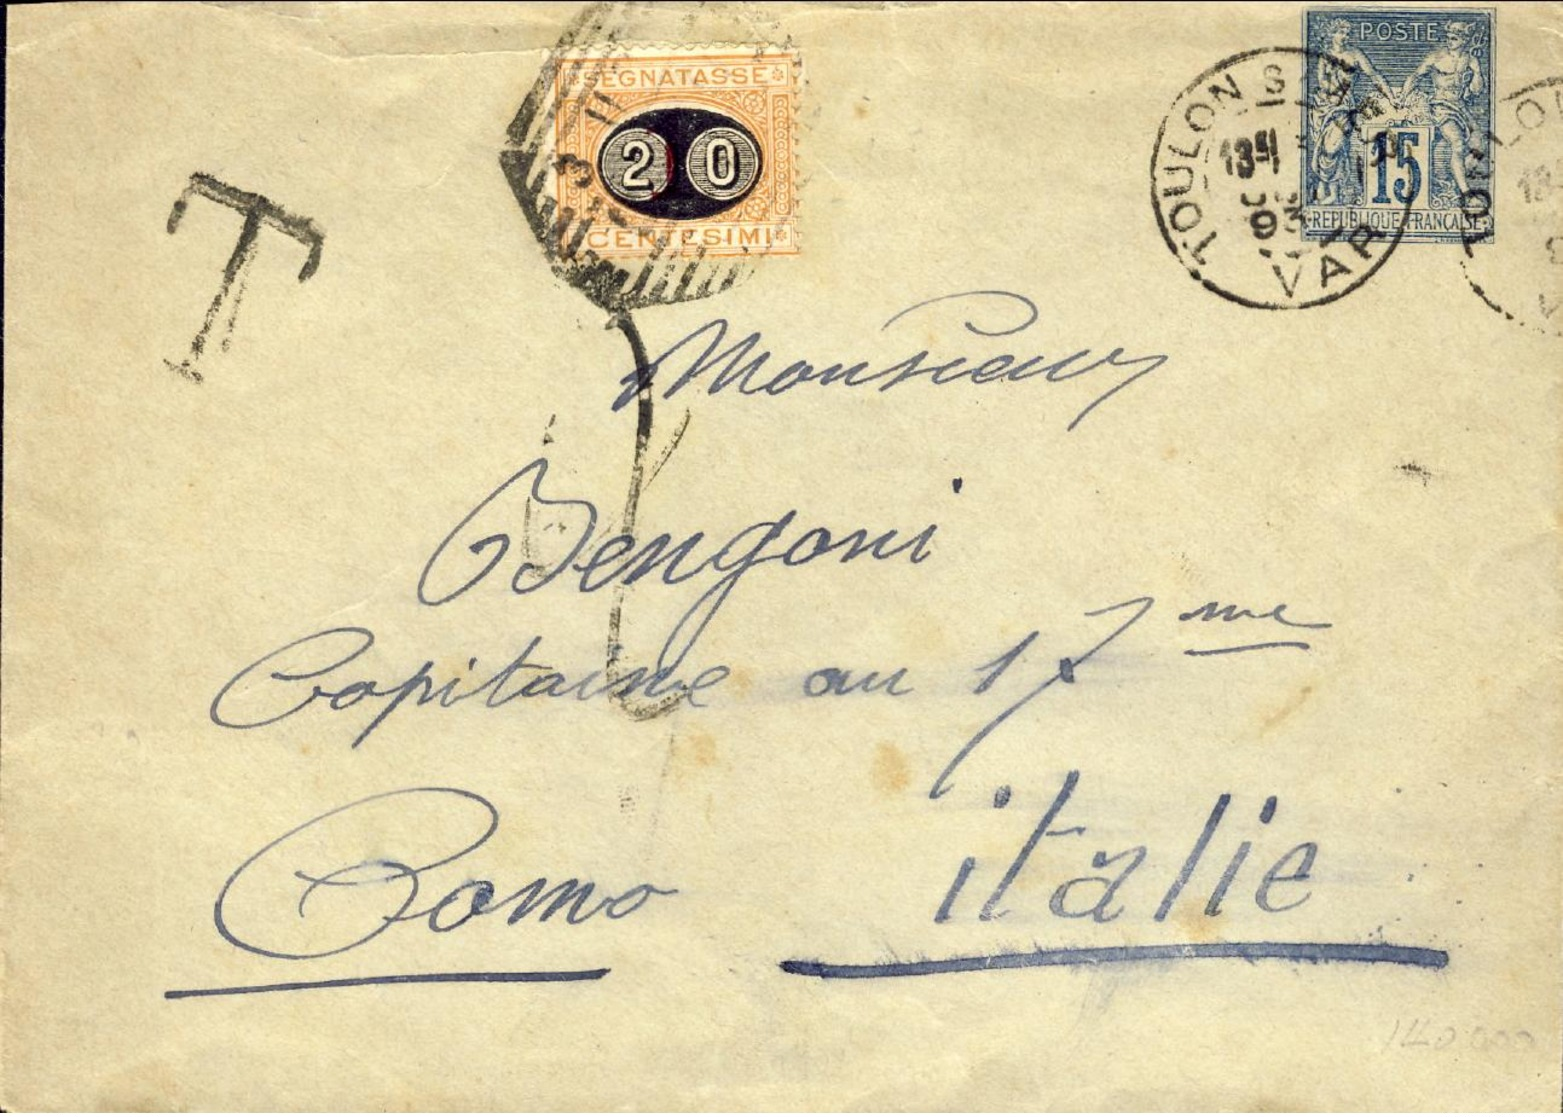 POSTE
15
REPUBLIQUE FRANÇAISE
TOULON S
13
93
VAR
SEGNATASSE
20
CENTESIMI
T
Monsieur
Bengoni
Capitaine au 17me
Como
italie
140000